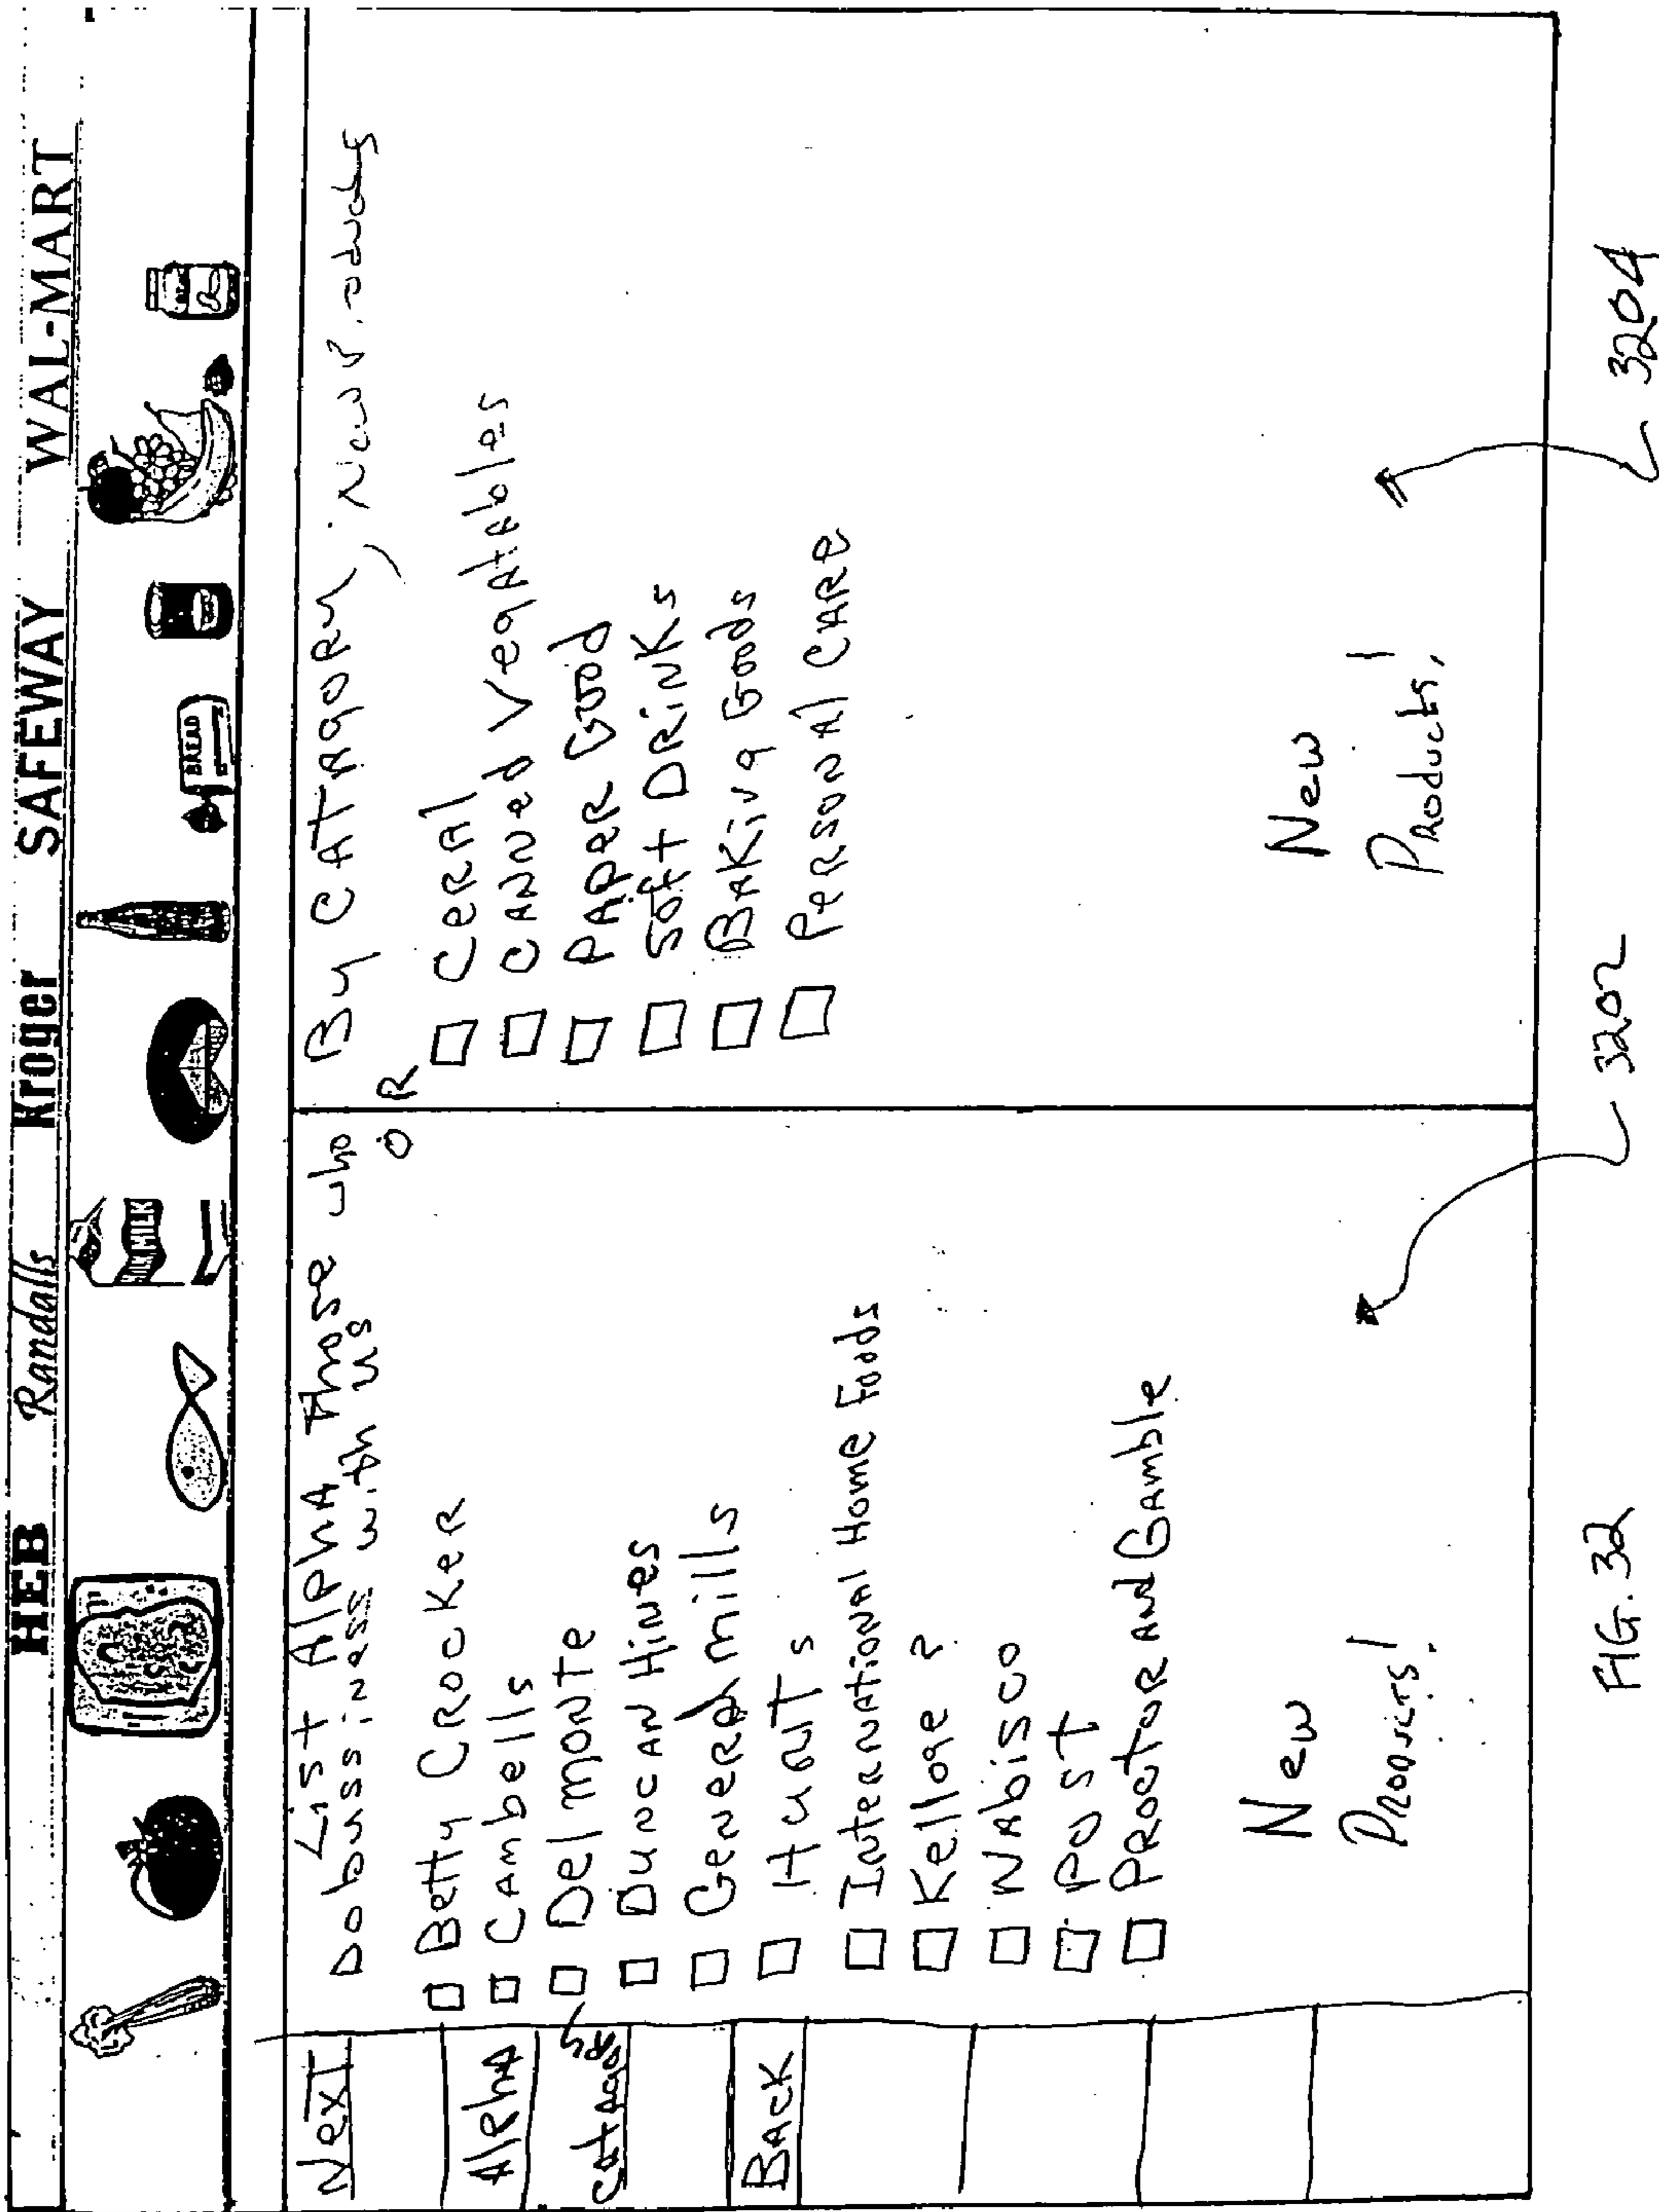 HEB Randalls Kroger SAFEWAY WAL-MART
MILK
BREAD
Next
Alpha
CATAGORY
BACK
List Alpha those who
Do bussiness with us
Betty Crocker
Cambells
Del monte
Duncan Hines
General mills
Hunts
International Home Foods
Kelloge ?
Nabisco
Post
Proctor and Gamble
New
Products!
OR
By CATAGORY, New Products
Ceral
Canned Vegatables
Paper Good
Soft Drinks
Baking Goods
Personal Care
New
Products!
3202
3204
FIG. 32